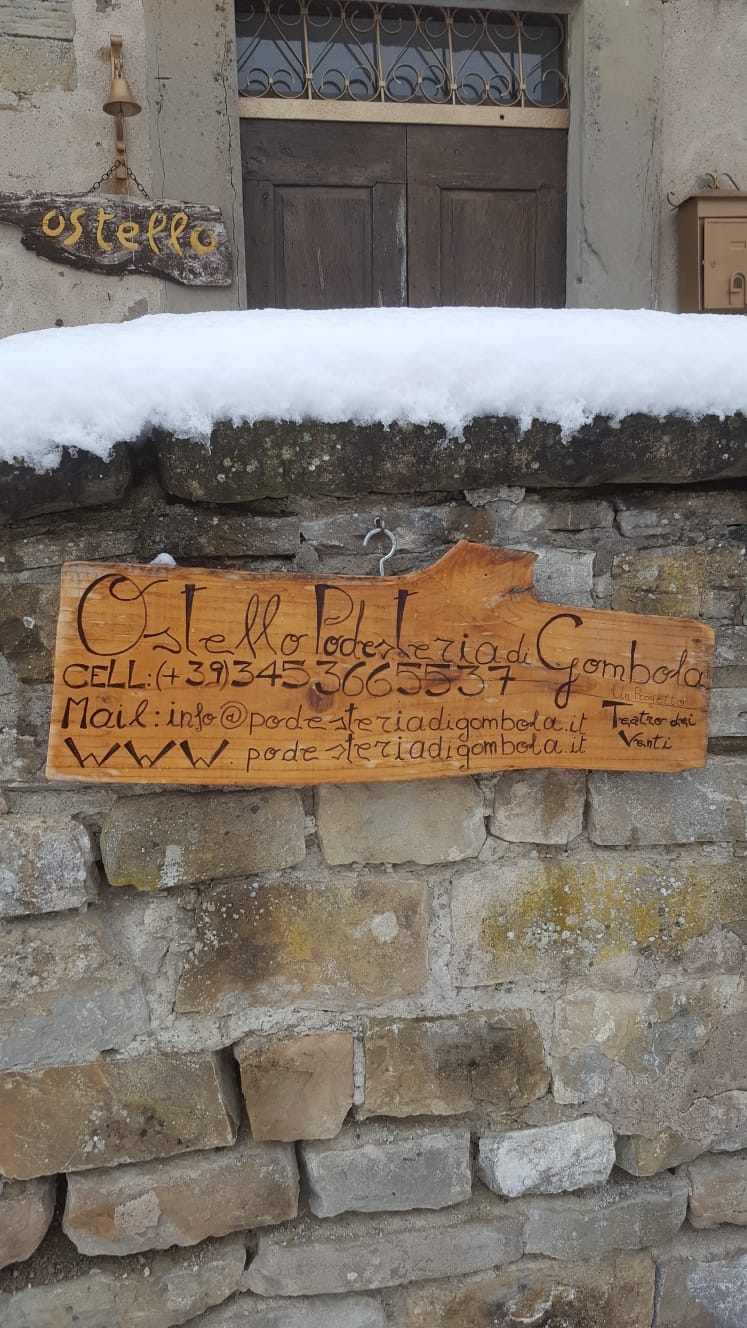 ostello
Ostello Podesteria di Gombola
CELL:(+39)3453665537
Mail:info@podesteriadigombola.it
www.podesteriadigombola.it
Un Progetto
Teatro dei
Venti